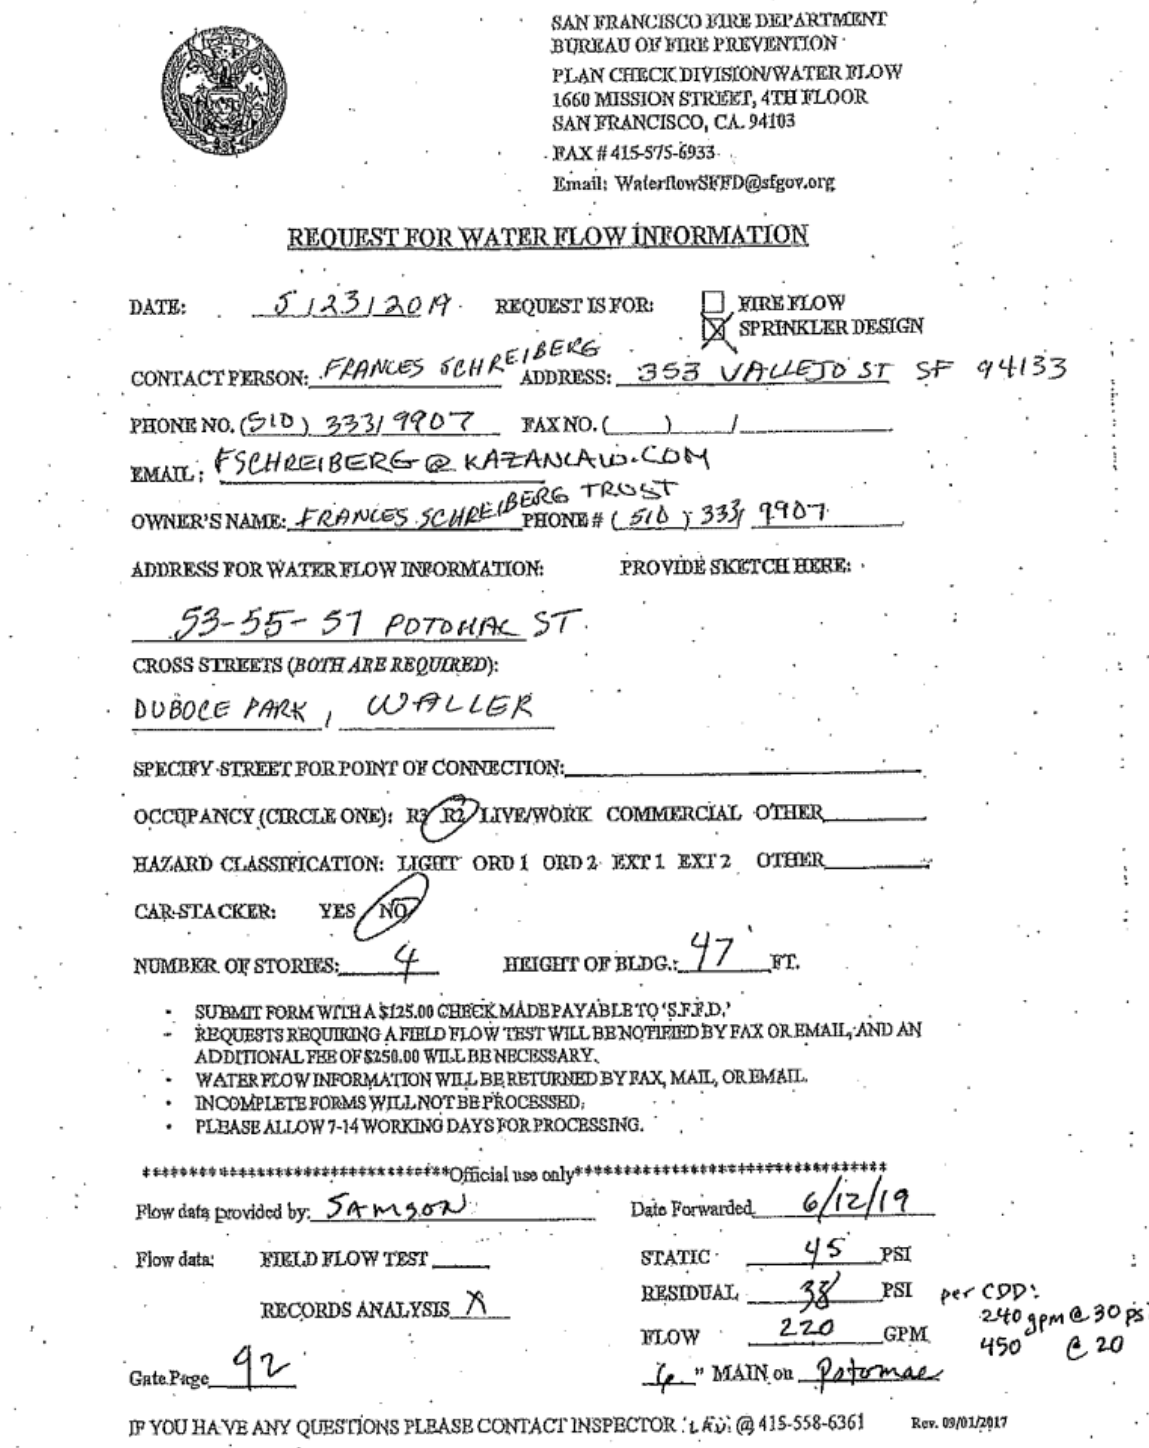 SAN FRANCISCO FIRE DEPARTMENT
BUREAU OF FIRE PREVENTION
PLAN CHECK DIVISION/WATER FLOW
1660 MISSION STREET, 4TH FLOOR
SAN FRANCISCO, CA. 94103
FAX # 415-575-6933
Email: WaterflowSFFD@sfgov.org
REQUEST FOR WATER FLOW INFORMATION
DATE: 5/23/2019 REQUEST IS FOR: FIRE FLOW
SPRINKLER DESIGN
CONTACT PERSON: FRANCES SCHREIBERG ADDRESS: 353 VALLEJO ST SF 94133
PHONE NO. (510) 333/9907 FAX NO. ( ) /
EMAIL: FSCHREIBERG@KAZANLAW.COM
OWNER'S NAME: FRANCES SCHREIBERG TRUST PHONE # (510) 333/9907
ADDRESS FOR WATER FLOW INFORMATION: PROVIDE SKETCH HERE:
53-55-57 POTOMAC ST.
CROSS STREETS (BOTH ARE REQUIRED):
DUBOCE PARK, WALLER
SPECIFY STREET FOR POINT OF CONNECTION:
OCCUPANCY (CIRCLE ONE): R3 R2 LIVE/WORK COMMERCIAL OTHER
HAZARD CLASSIFICATION: LIGHT ORD 1 ORD 2 EXT 1 EXT 2 OTHER
CAR-STACKER: YES NO
NUMBER OF STORIES: 4 HEIGHT OF BLDG.: 47' FT.
• SUBMIT FORM WITH A $125.00 CHECK MADE PAYABLE TO 'S.F.F.D.'
• REQUESTS REQUIRING A FIELD FLOW TEST WILL BE NOTIFIED BY FAX OR EMAIL, AND AN
ADDITIONAL FEE OF $250.00 WILL BE NECESSARY.
• WATER FLOW INFORMATION WILL BE RETURNED BY FAX, MAIL, OR EMAIL.
• INCOMPLETE FORMS WILL NOT BE PROCESSED.
• PLEASE ALLOW 7-14 WORKING DAYS FOR PROCESSING.
*********************************Official use only*********************************
Flow data provided by: SAMSON Date Forwarded 6/12/19
Flow data: FIELD FLOW TEST STATIC 45 PSI
RECORDS ANALYSIS X RESIDUAL 38 PSI per CDD:
240 gpm @ 30 ps
FLOW 220 GPM 450 @ 20
Gate Page 92 6 " MAIN on Potomac
IF YOU HAVE ANY QUESTIONS PLEASE CONTACT INSPECTOR @ 415-558-6361 Rev. 09/01/2017